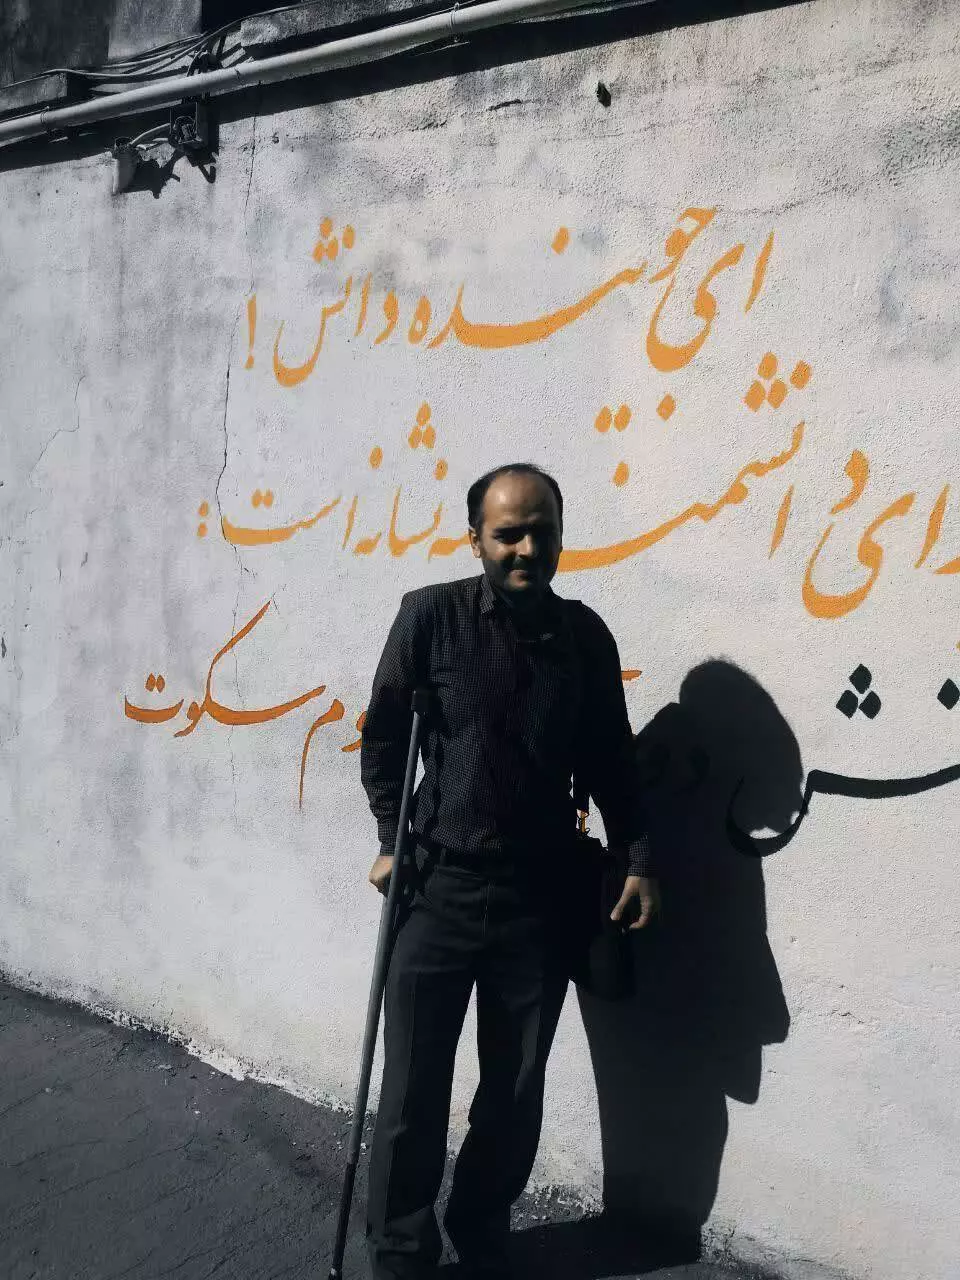 ای جوینده دانش !
دانشمند سه نشانه است :
سکوت